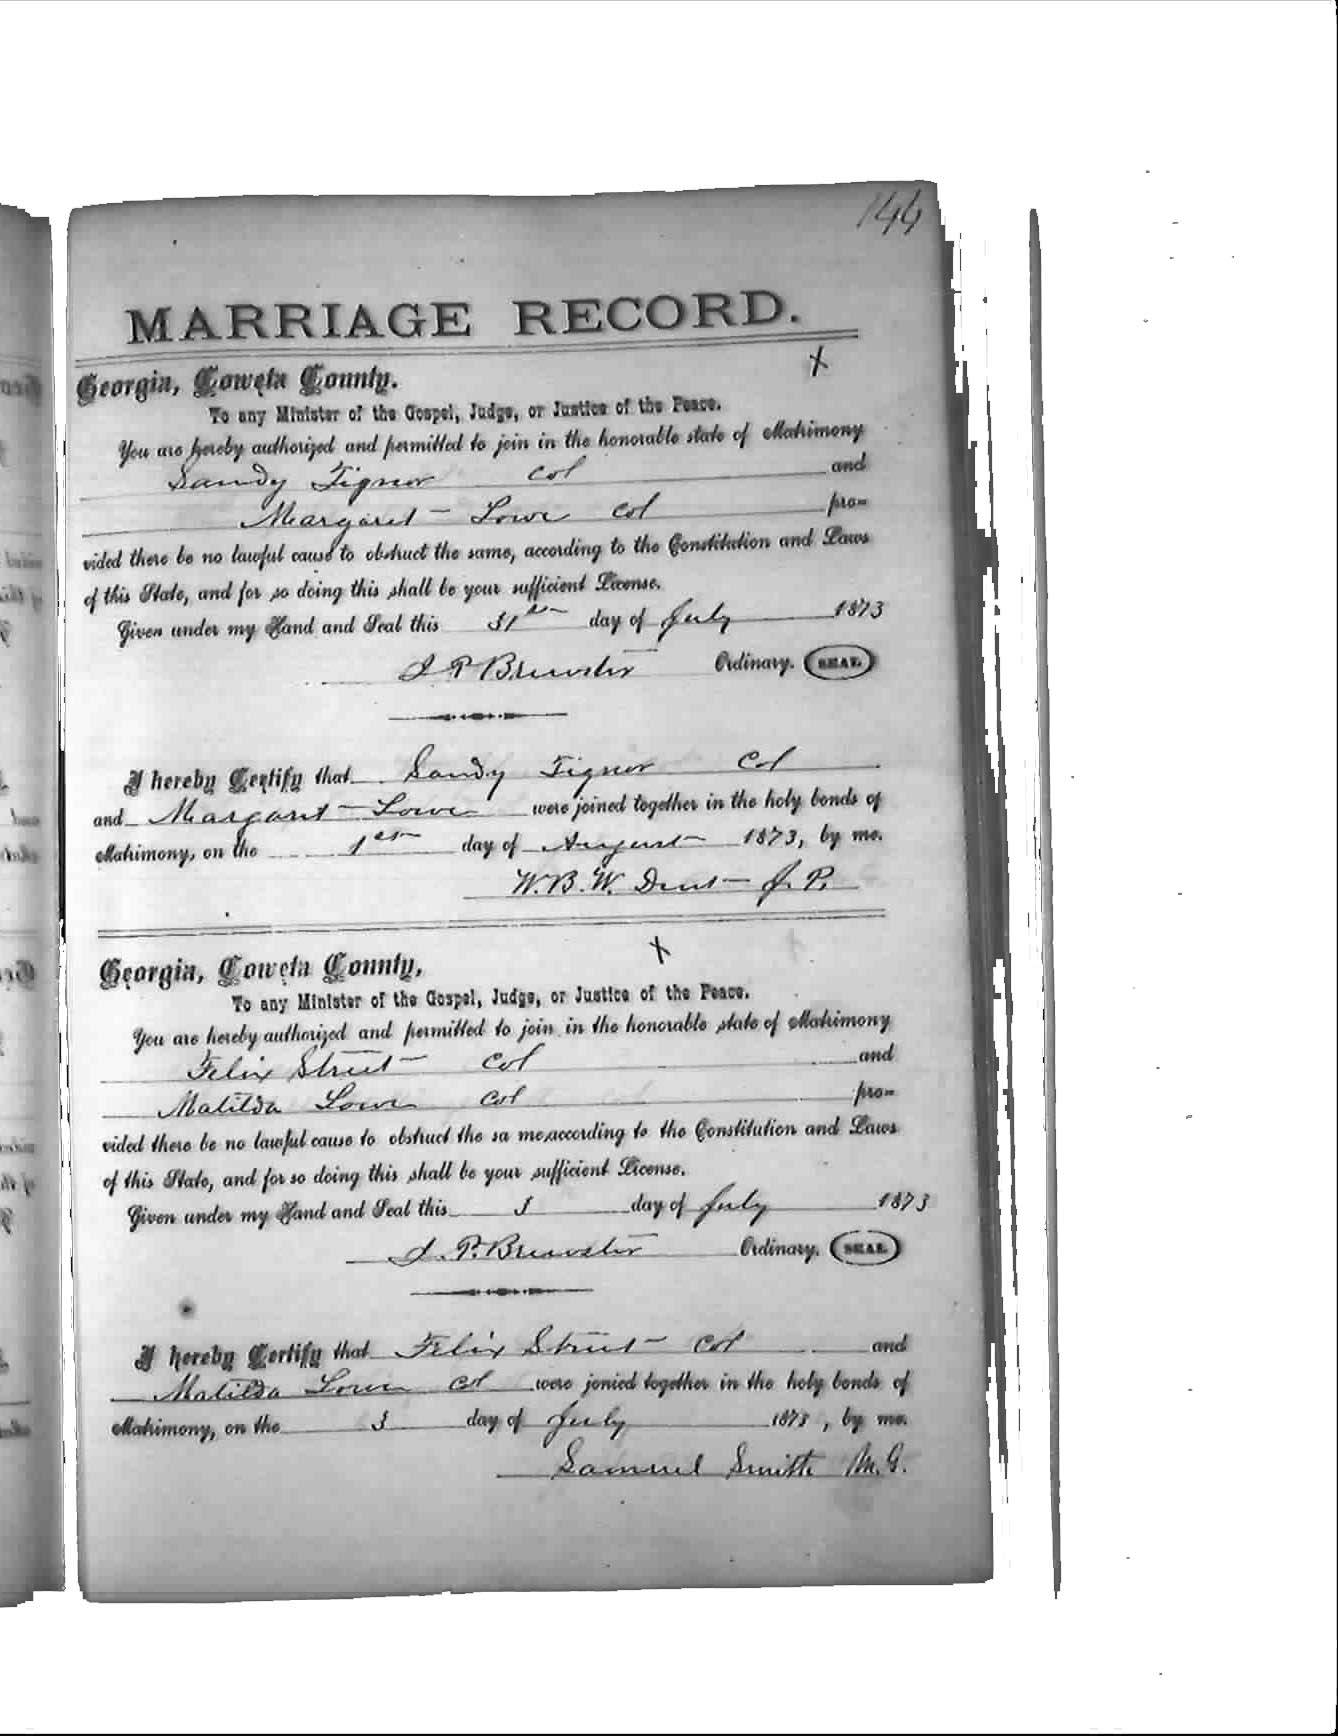 144
MARRIAGE RECORD.
X
Georgia, Coweta County.
To any Minister of the Gospel, Judge, or Justice of the Peace.
You are hereby authorized and permitted to join in the honorable state of Matrimony
Sandy Tignor Col and
Margaret Lowe Col pro-
vided there be no lawful cause to obstruct the same, according to the Constitution and Laws
of this State, and for so doing this shall be your sufficient License.
Given under my Hand and Seal this 31st day of July 1873
J. P. Brewster Ordinary. SEAL
I hereby Certify that Sandy Tignor Col
and Margaret Lowe were joined together in the holy bonds of
Matrimony, on the 1st day of August 1873, by me.
W. B. W. Dent J. P.
X
Georgia, Coweta County,
To any Minister of the Gospel, Judge, or Justice of the Peace.
You are hereby authorized and permitted to join in the honorable state of Matrimony
Felix Street Col and
Matilda Lowe Col pro-
vided there be no lawful cause to obstruct the sa me, according to the Constitution and Laws
of this State, and for so doing this shall be your sufficient License.
Given under my Hand and Seal this 3 day of July 1873
J. P. Brewster Ordinary. SEAL
I hereby Certify that Felix Street Col and
Matilda Lowe Col were jonied together in the holy bonds of
Matrimony, on the 3 day of July 1873, by me.
Samuel Smith M. G.